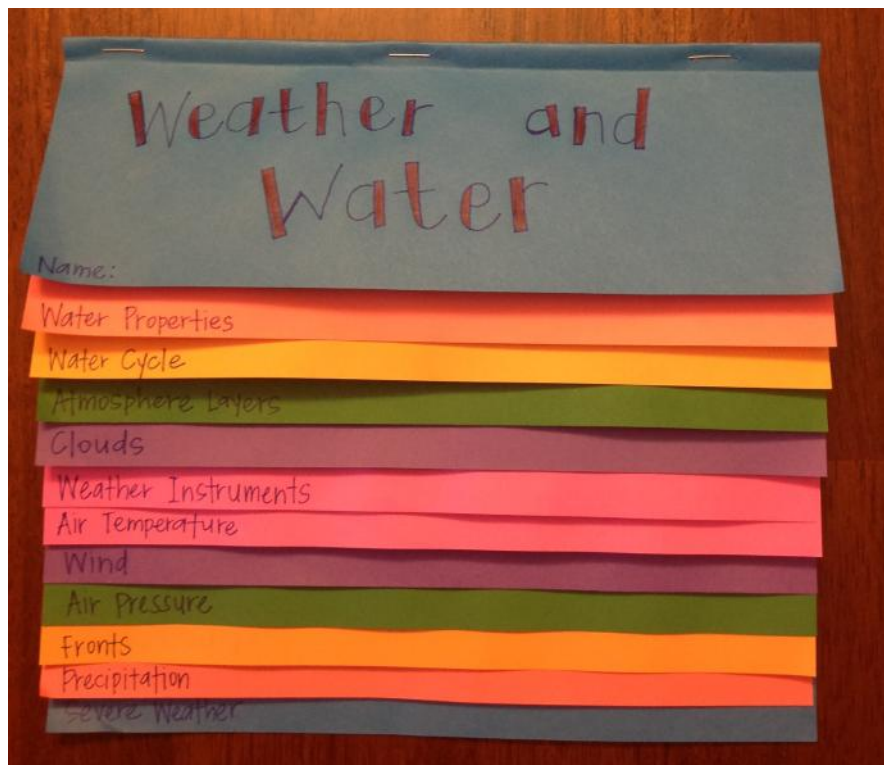 Weather and
Water
Name:
Water Properties
Water Cycle
Atmosphere Layers
Clouds
Weather Instruments
Air Temperature
Wind
Air Pressure
Fronts
Precipitation
Severe Weather